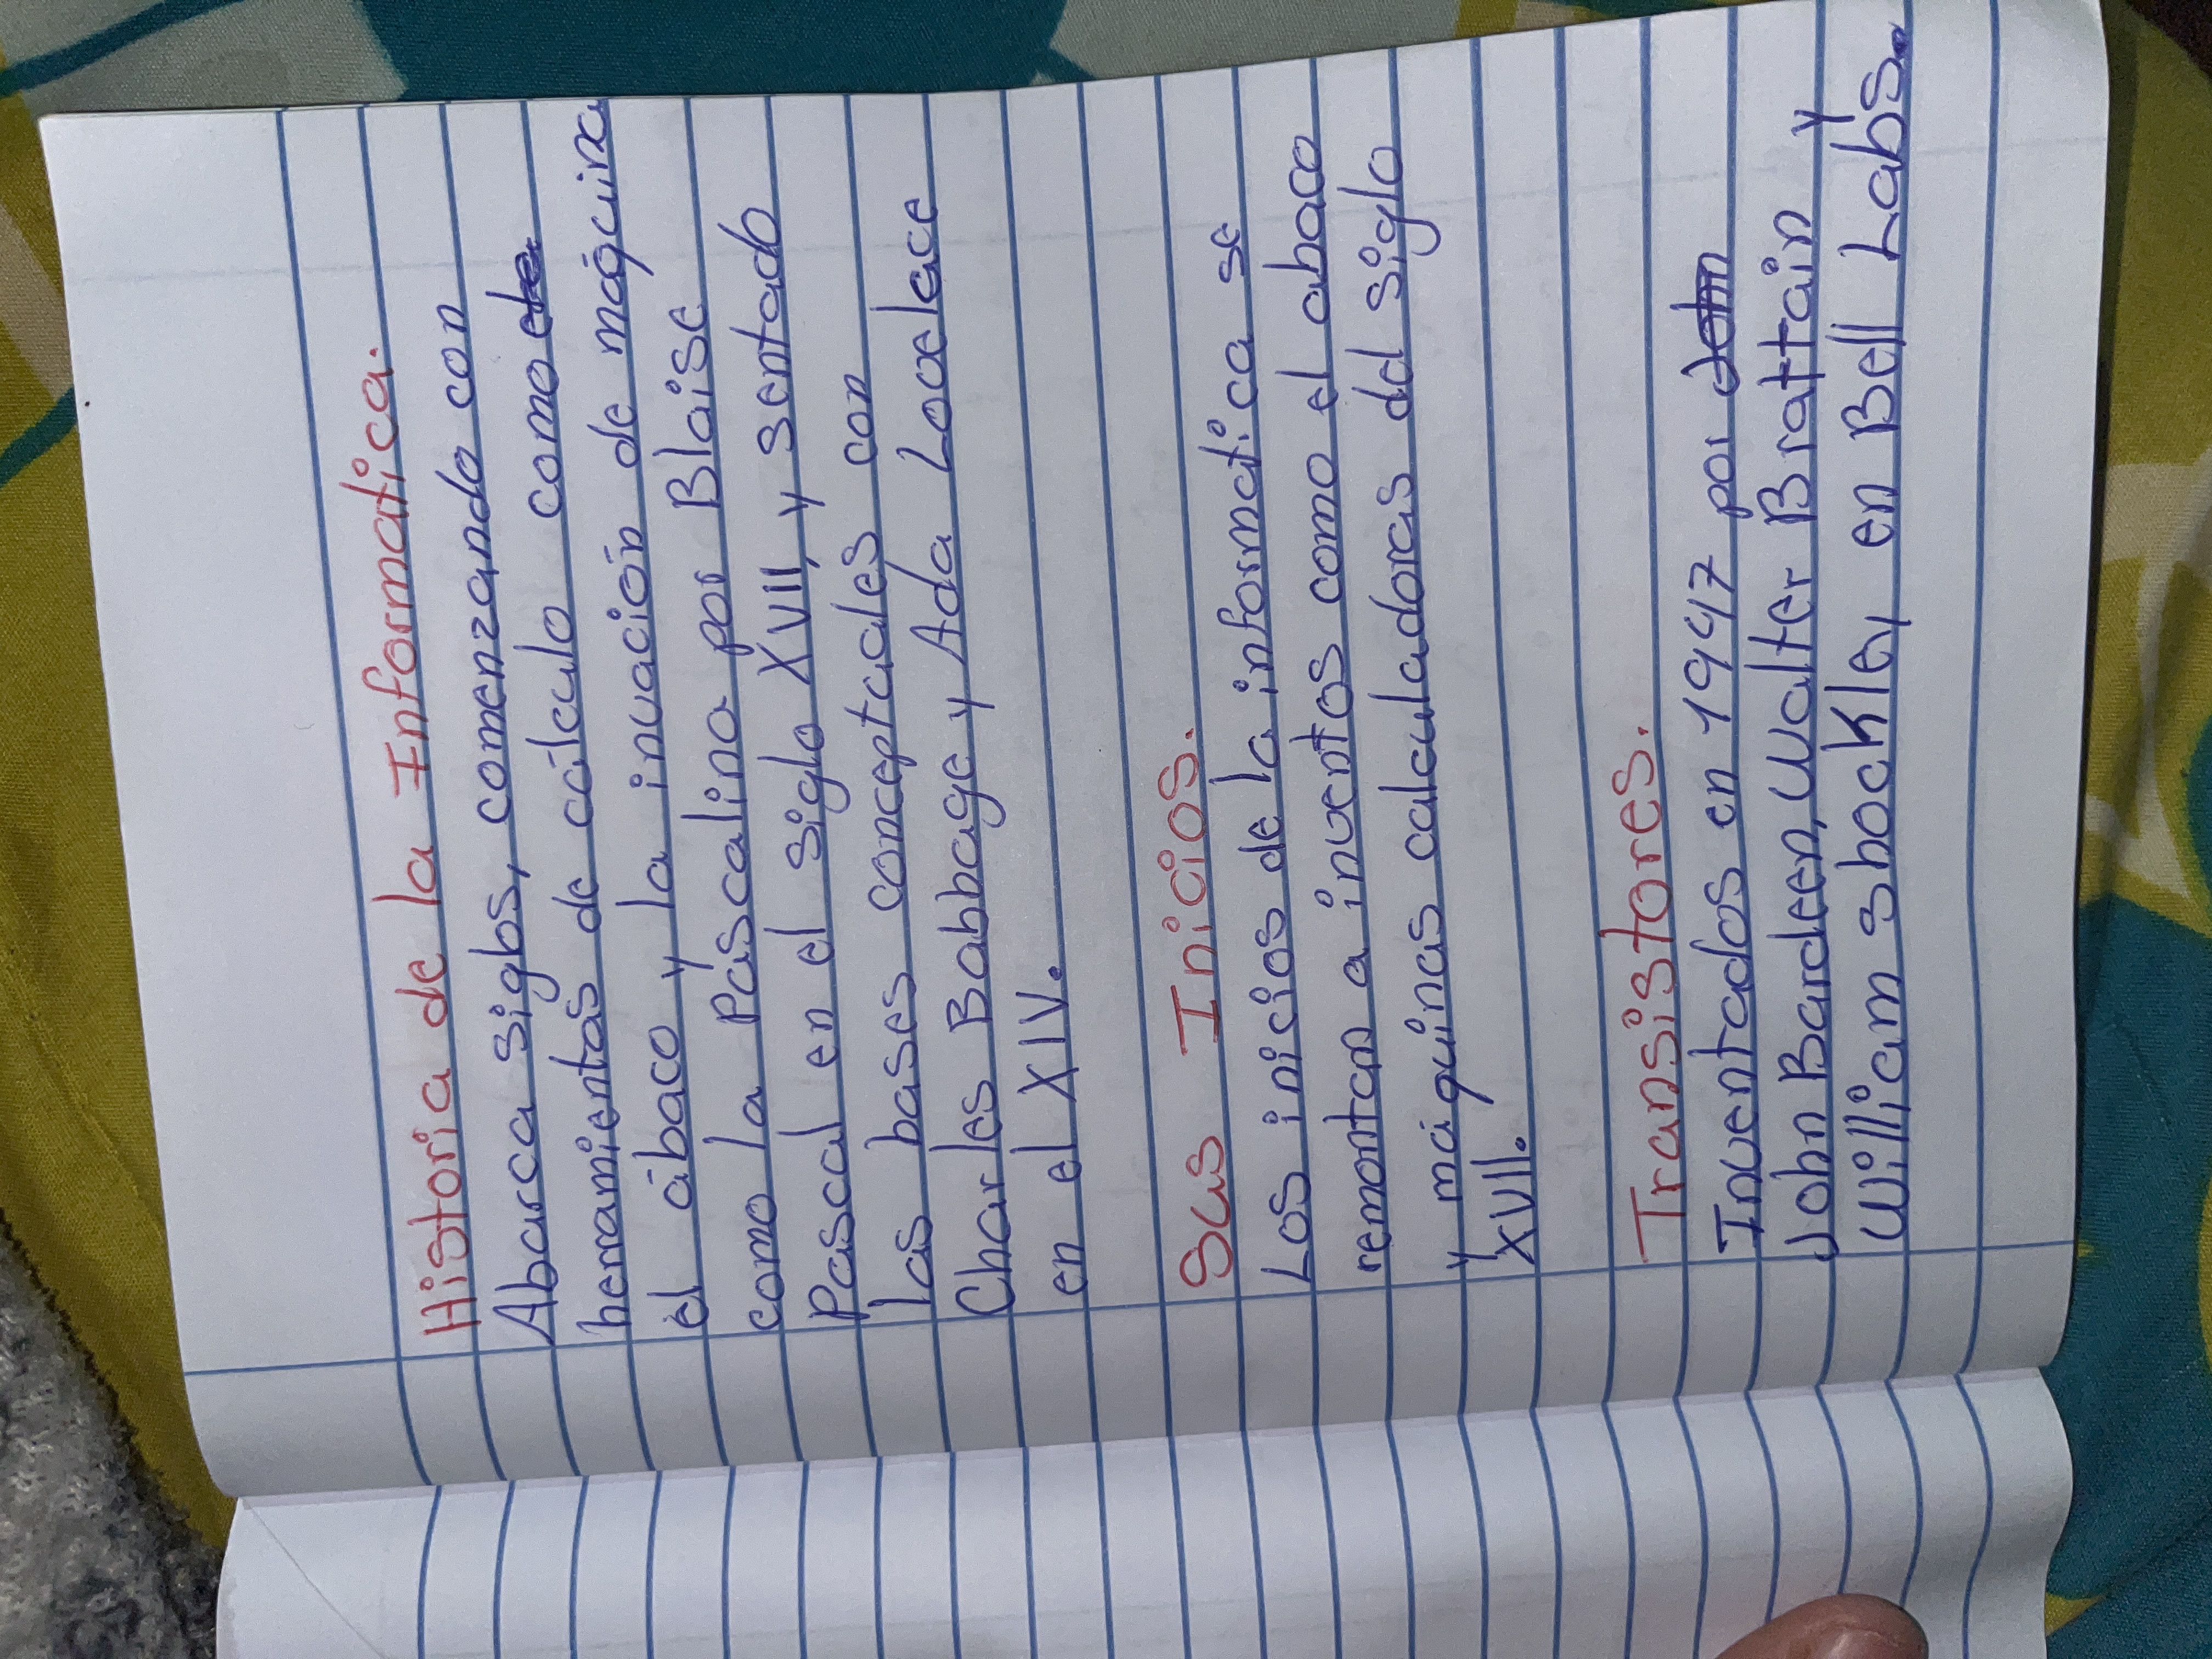 Historia de la Informatica.
Abarca siglos, comenzando con
herramientas de cálculo como
el ábaco y la invación de máquina
como la Pascalina por Blaise
Pascal en el siglo XVII, y sentado
las bases conceptuales con
Charles Babbage y Ada Lovelace
en el XIV.
Sus Inicios.
Los inicios de la informatica se
remontan a inventos como el abaco
y máquinas calculadoras del siglo
XVII.
Transistores.
Inventados en 1947 por
John Bardeen, Walter Brattain y
William shockley en Bell Labs.